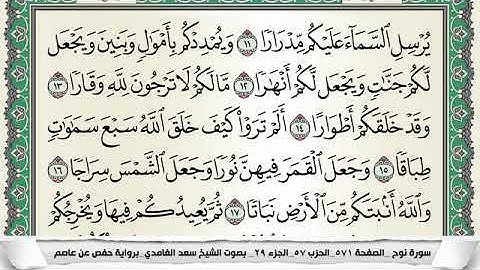 يُرْسِلِ السَّمَاءَ عَلَيْكُم مِّدْرَارًا ١١ وَيُمْدِدْكُم بِأَمْوَٰلٍ وَبَنِينَ وَيَجْعَل
لَّكُمْ جَنَّٰتٍ وَيَجْعَل لَّكُمْ أَنْهَٰرًا ١٢ مَّا لَكُمْ لَا تَرْجُونَ لِلَّهِ وَقَارًا ١٣
وَقَدْ خَلَقَكُمْ أَطْوَارًا ١٤ أَلَمْ تَرَوْا۟ كَيْفَ خَلَقَ ٱللَّهُ سَبْعَ سَمَٰوَٰتٍ
طِبَاقًا ١٥ وَجَعَلَ ٱلْقَمَرَ فِيهِنَّ نُورًا وَجَعَلَ ٱلشَّمْسَ سِرَاجًا ١٦
وَٱللَّهُ أَنۢبَتَكُم مِّنَ ٱلْأَرْضِ نَبَاتًا ١٧ ثُمَّ يُعِيدُكُمْ فِيهَا وَيُخْرِجُكُمْ
سورة نوح _الصفحة ٥٧١_ الحزب ٥٧_ الجزء ٢٩ _ بصوت الشيخ سعد الغامدي _برواية حفص عن عاصم